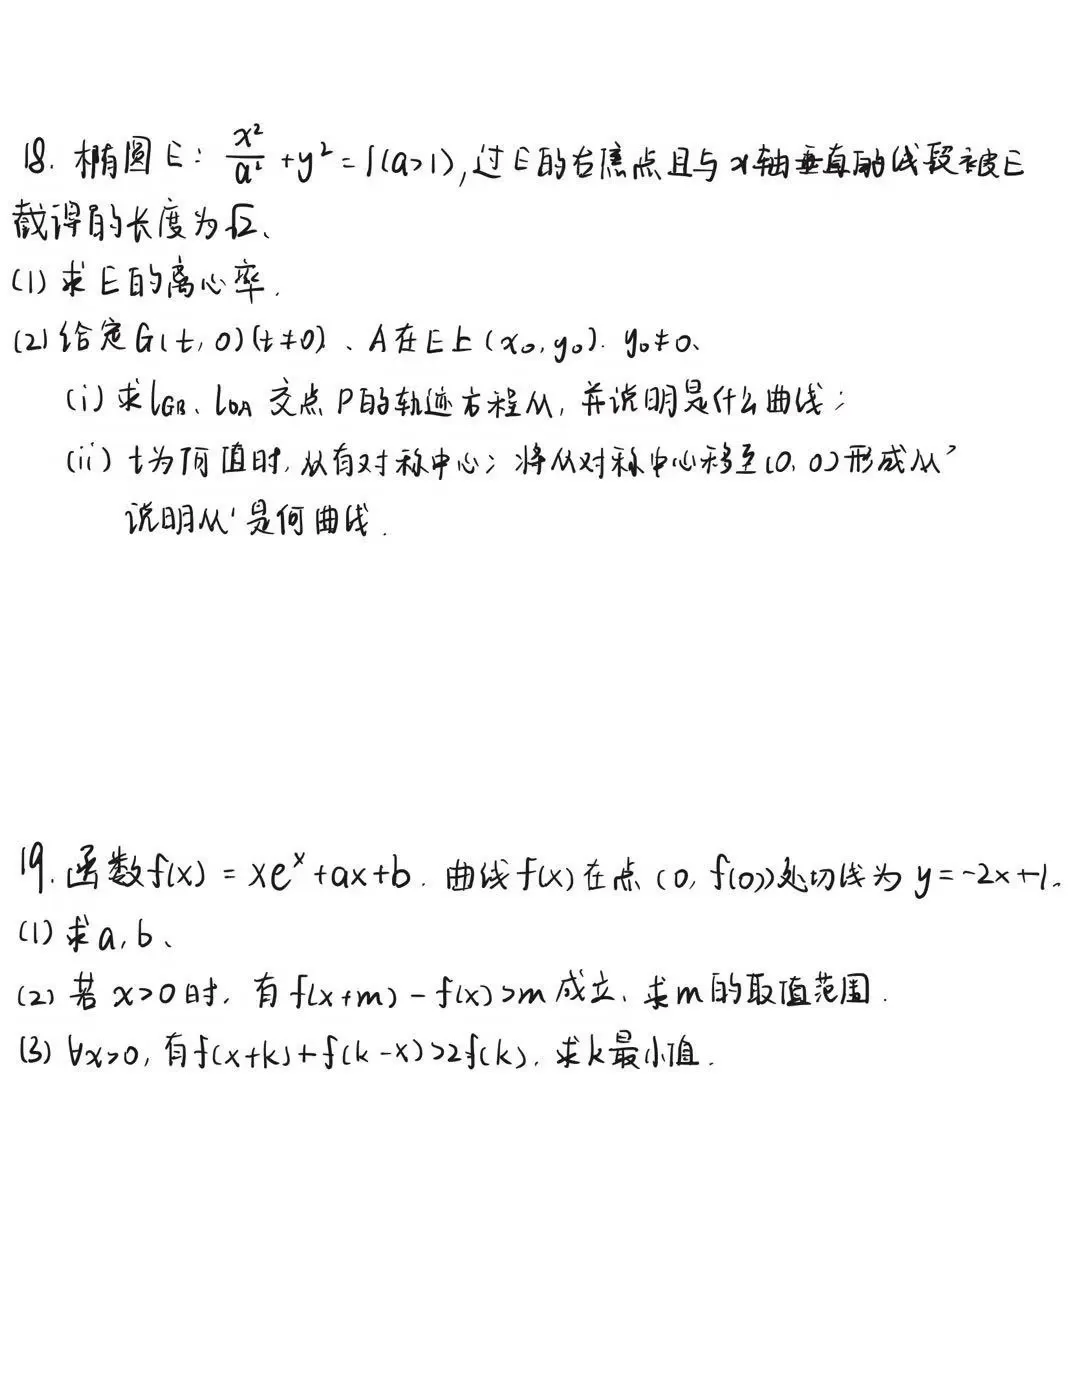 18. 椭圆E: x²/a² + y² = 1(a>1), 过E的右焦点且与x轴垂直的线段被E
截得的长度为√2、
(1) 求E的离心率.
(2) 给定G(t, 0)(t≠0)、A在E上(x₀, y₀). y₀≠0、
(i) 求l_GB、l_OA 交点P的轨迹方程M, 并说明是什么曲线;
(ii) t为何值时, M有对称中心; 将M对称中心移至(0, 0)形成M'
说明M'是何曲线.
19. 函数f(x) = xeˣ+ax+b. 曲线f(x)在点(0, f(0))处切线为y=-2x+1.
(1) 求a, b、
(2) 若x>0时, 有f(x+m)-f(x)>m成立、求m的取值范围.
(3) ∀x>0, 有f(x+k)+f(k-x)>2f(k). 求k最小值.